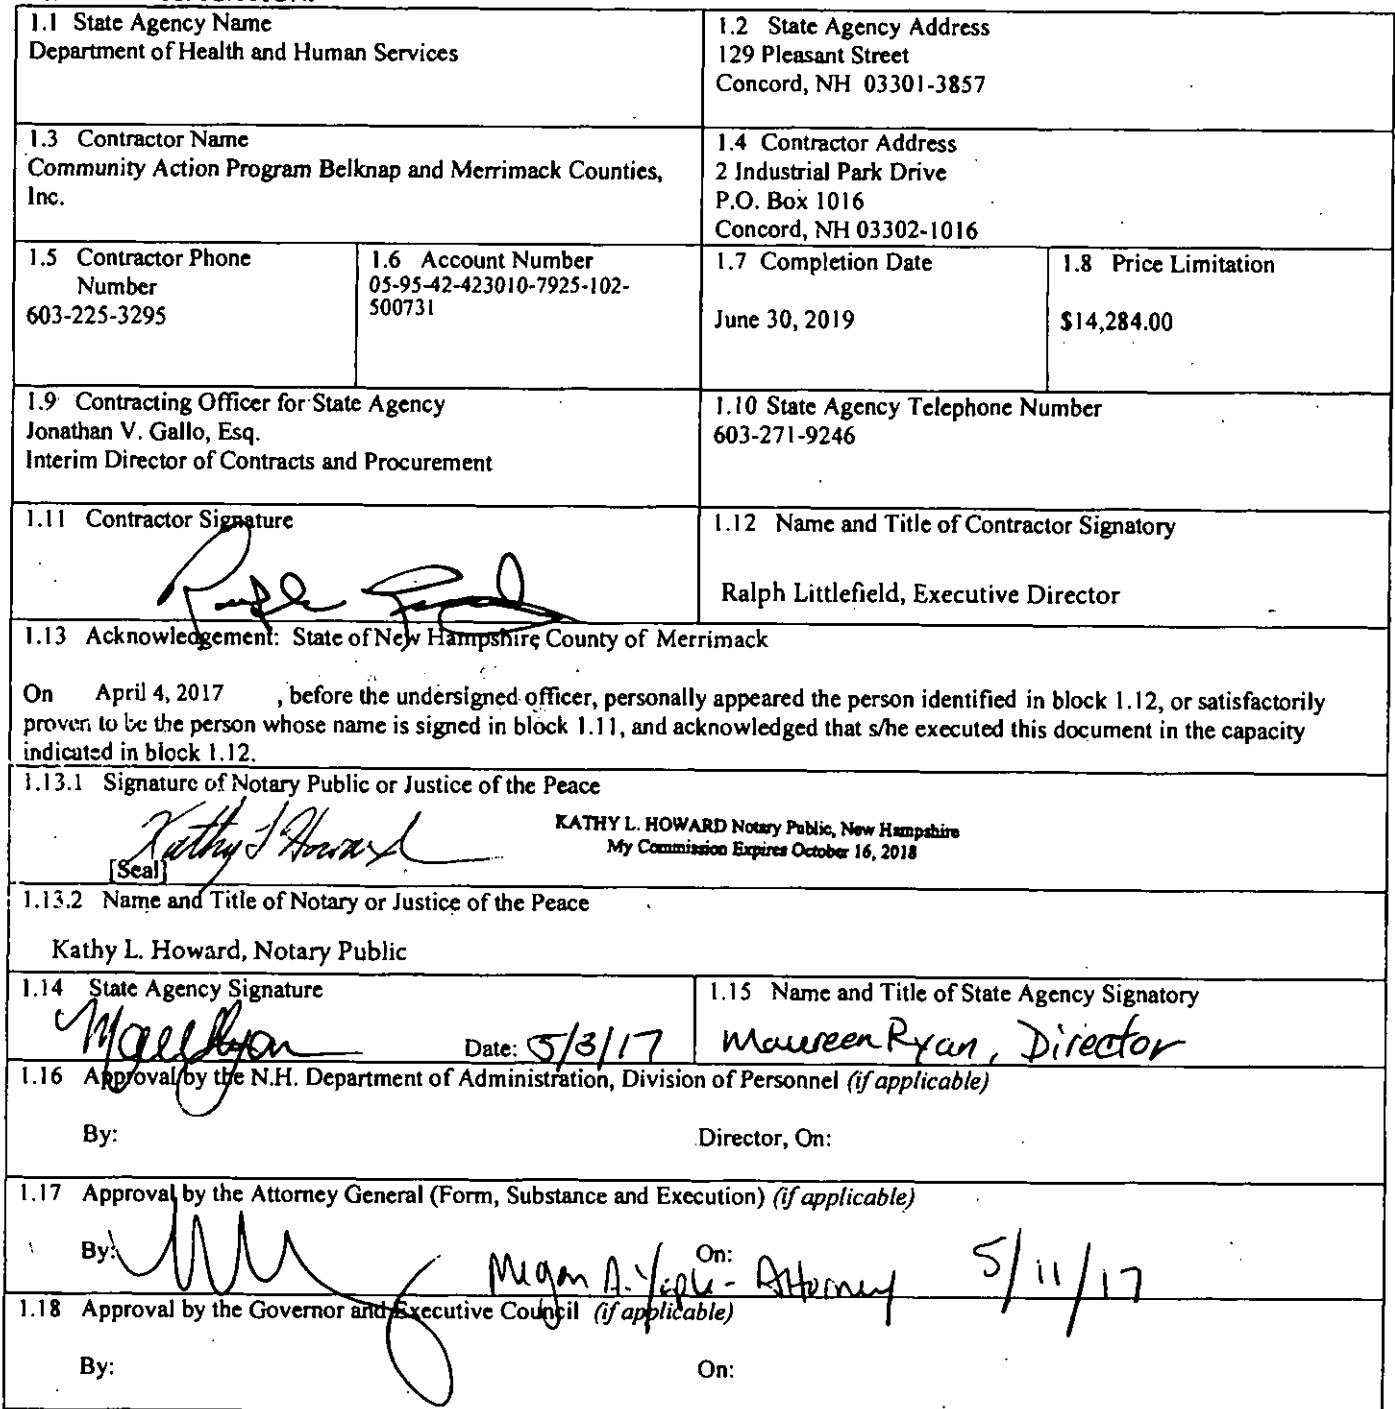 1.1 State Agency Name
Department of Health and Human Services
1.2 State Agency Address
129 Pleasant Street
Concord, NH 03301-3857
1.3 Contractor Name
Community Action Program Belknap and Merrimack Counties,
Inc.
1.4 Contractor Address
2 Industrial Park Drive
P.O. Box 1016
Concord, NH 03302-1016
1.5 Contractor Phone
Number
603-225-3295
1.6 Account Number
05-95-42-423010-7925-102-
500731
1.7 Completion Date
June 30, 2019
1.8 Price Limitation
$14,284.00
1.9 Contracting Officer for State Agency
Jonathan V. Gallo, Esq.
Interim Director of Contracts and Procurement
1.10 State Agency Telephone Number
603-271-9246
1.11 Contractor Signature
1.12 Name and Title of Contractor Signatory
Ralph Littlefield, Executive Director
1.13 Acknowledgement: State of New Hampshire County of Merrimack
On April 4, 2017 , before the undersigned officer, personally appeared the person identified in block 1.12, or satisfactorily
proven to be the person whose name is signed in block 1.11, and acknowledged that s/he executed this document in the capacity
indicated in block 1.12.
1.13.1 Signature of Notary Public or Justice of the Peace
Kathy L Howard
KATHY L. HOWARD Notary Public, New Hampshire
My Commission Expires October 16, 2018
[Seal]
1.13.2 Name and Title of Notary or Justice of the Peace
Kathy L. Howard, Notary Public
1.14 State Agency Signature
Date: 5/3/17
1.15 Name and Title of State Agency Signatory
Maureen Ryan, Director
1.16 Approval by the N.H. Department of Administration, Division of Personnel (if applicable)
By:
Director, On:
1.17 Approval by the Attorney General (Form, Substance and Execution) (if applicable)
By:
On:
Megan A. - Attorney 5/11/17
1.18 Approval by the Governor and Executive Council (if applicable)
By:
On: